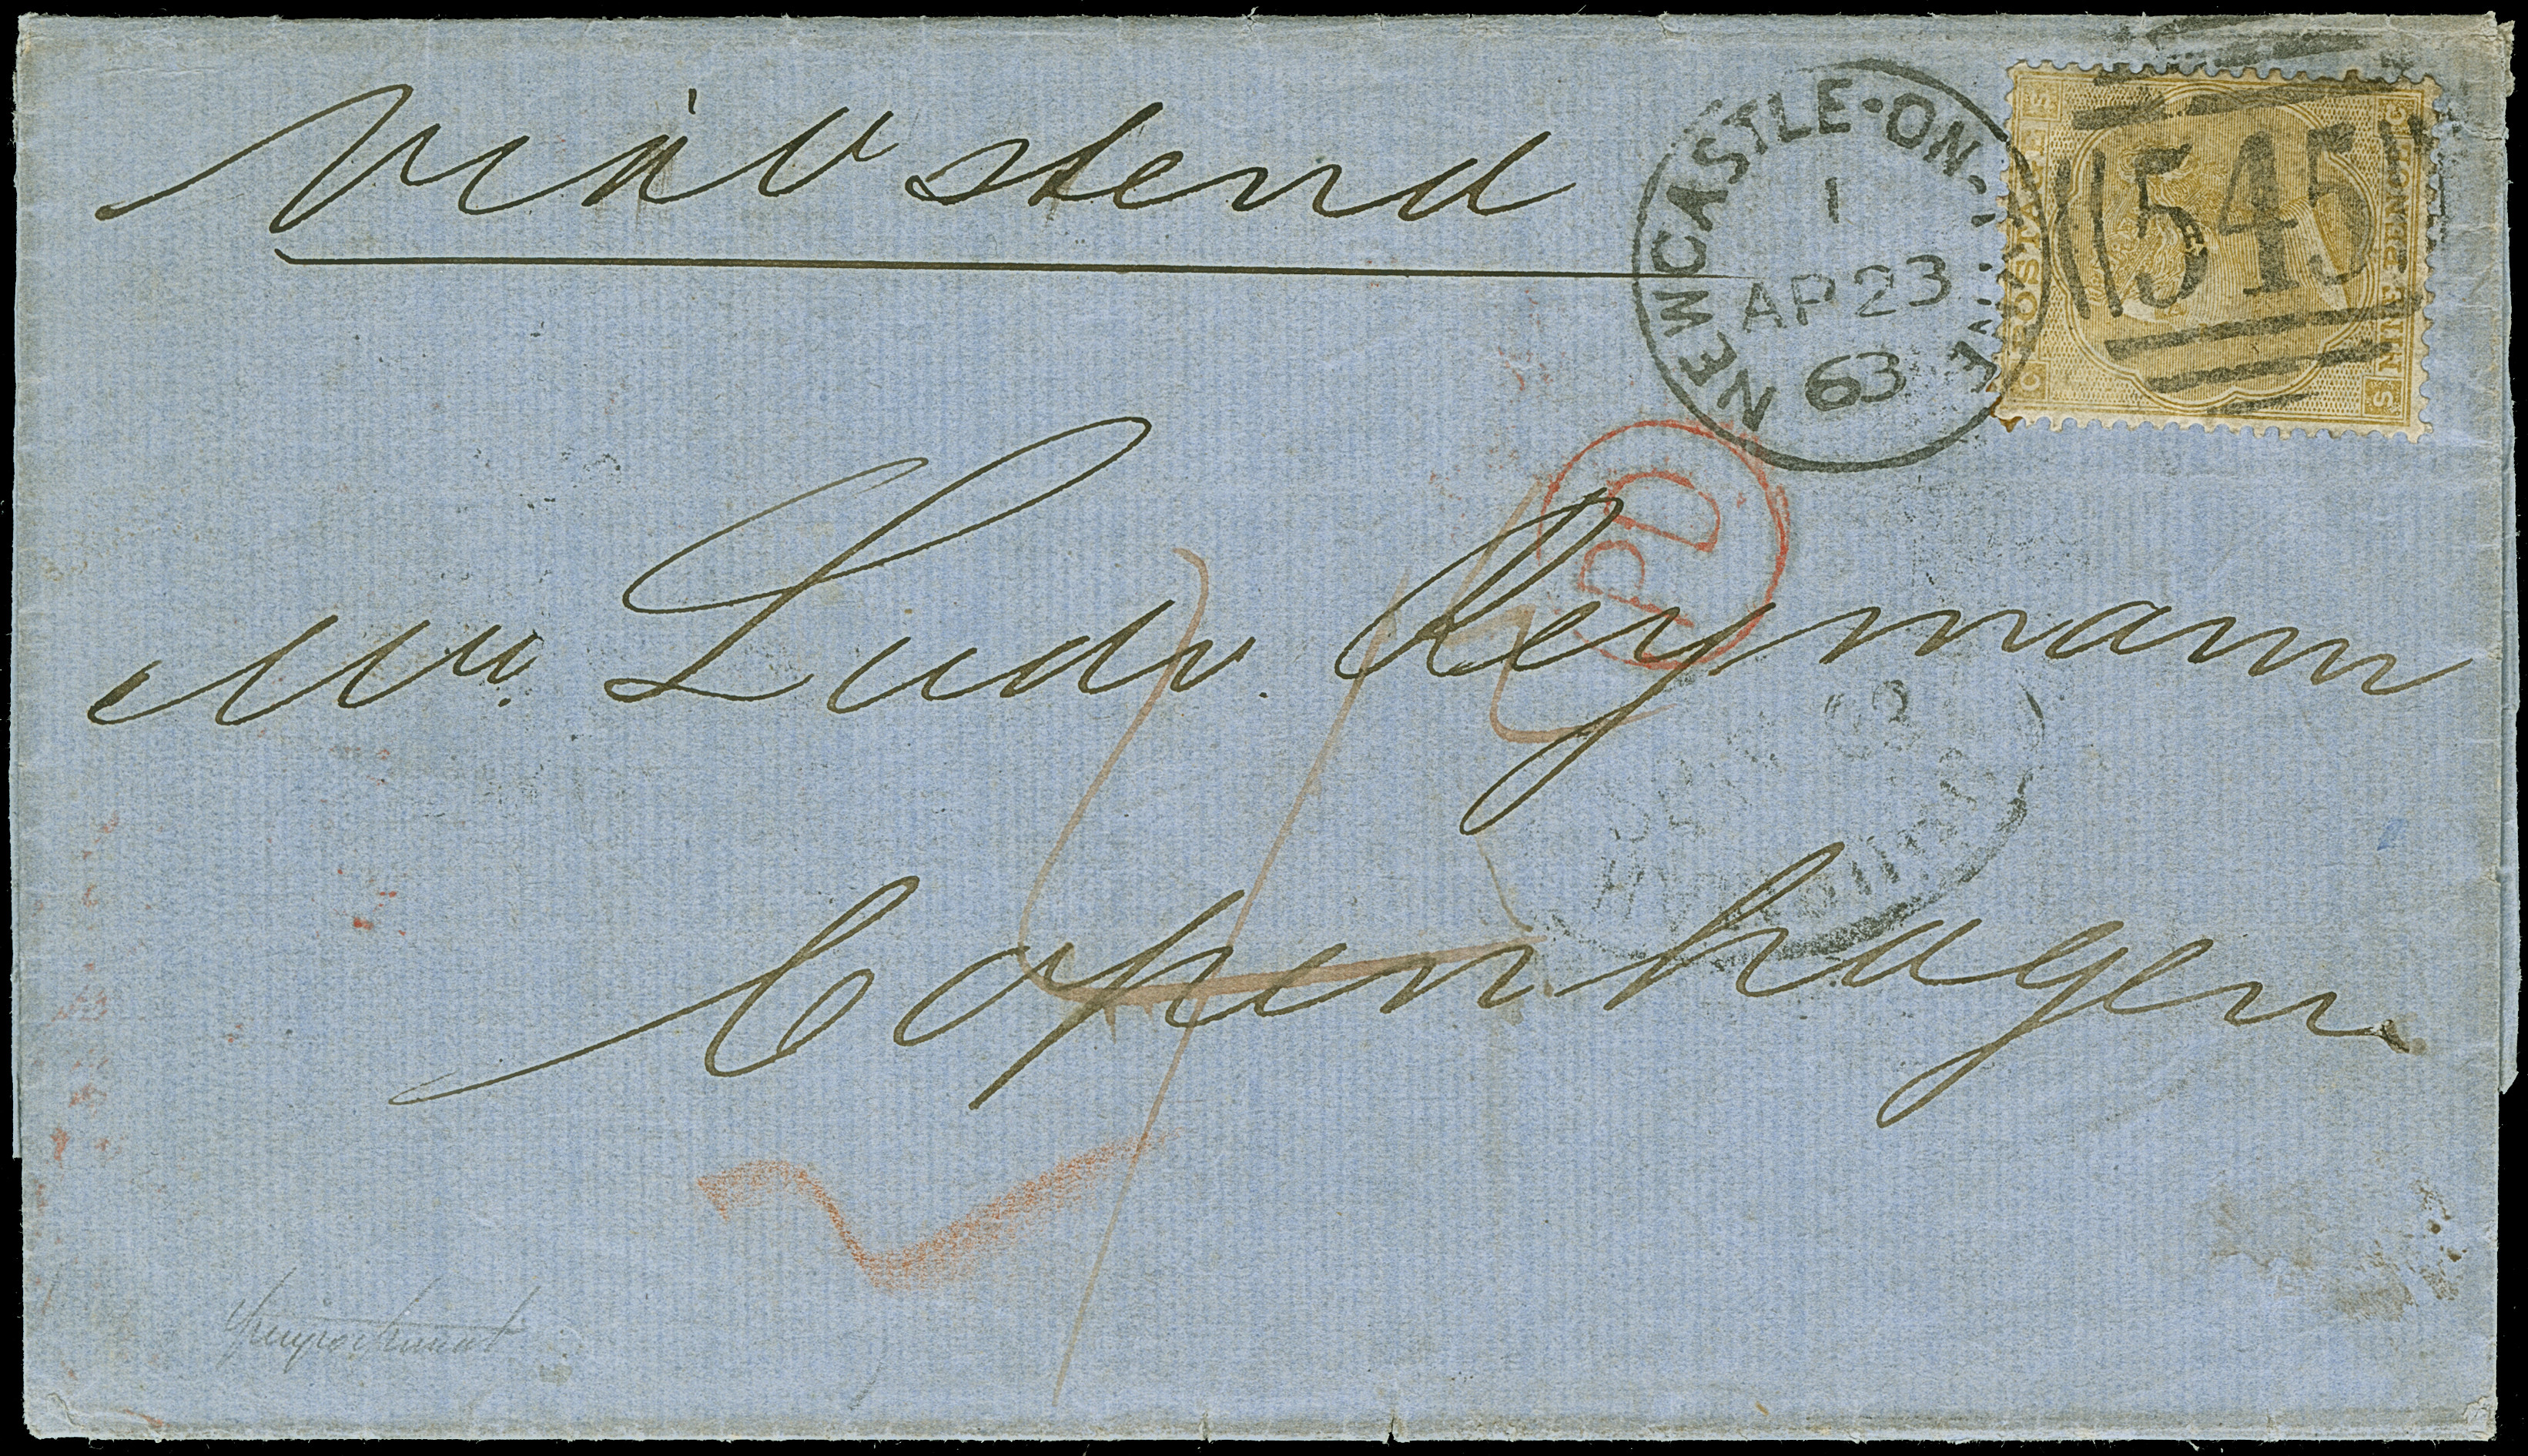 Via Ostend
NEWCASTLE-ON-TYNE
1
AP 23
63
545
POSTAGE
NINE PENCE
S
C
C
S
PD
Mr. Ludv. Reymann
Copenhagen